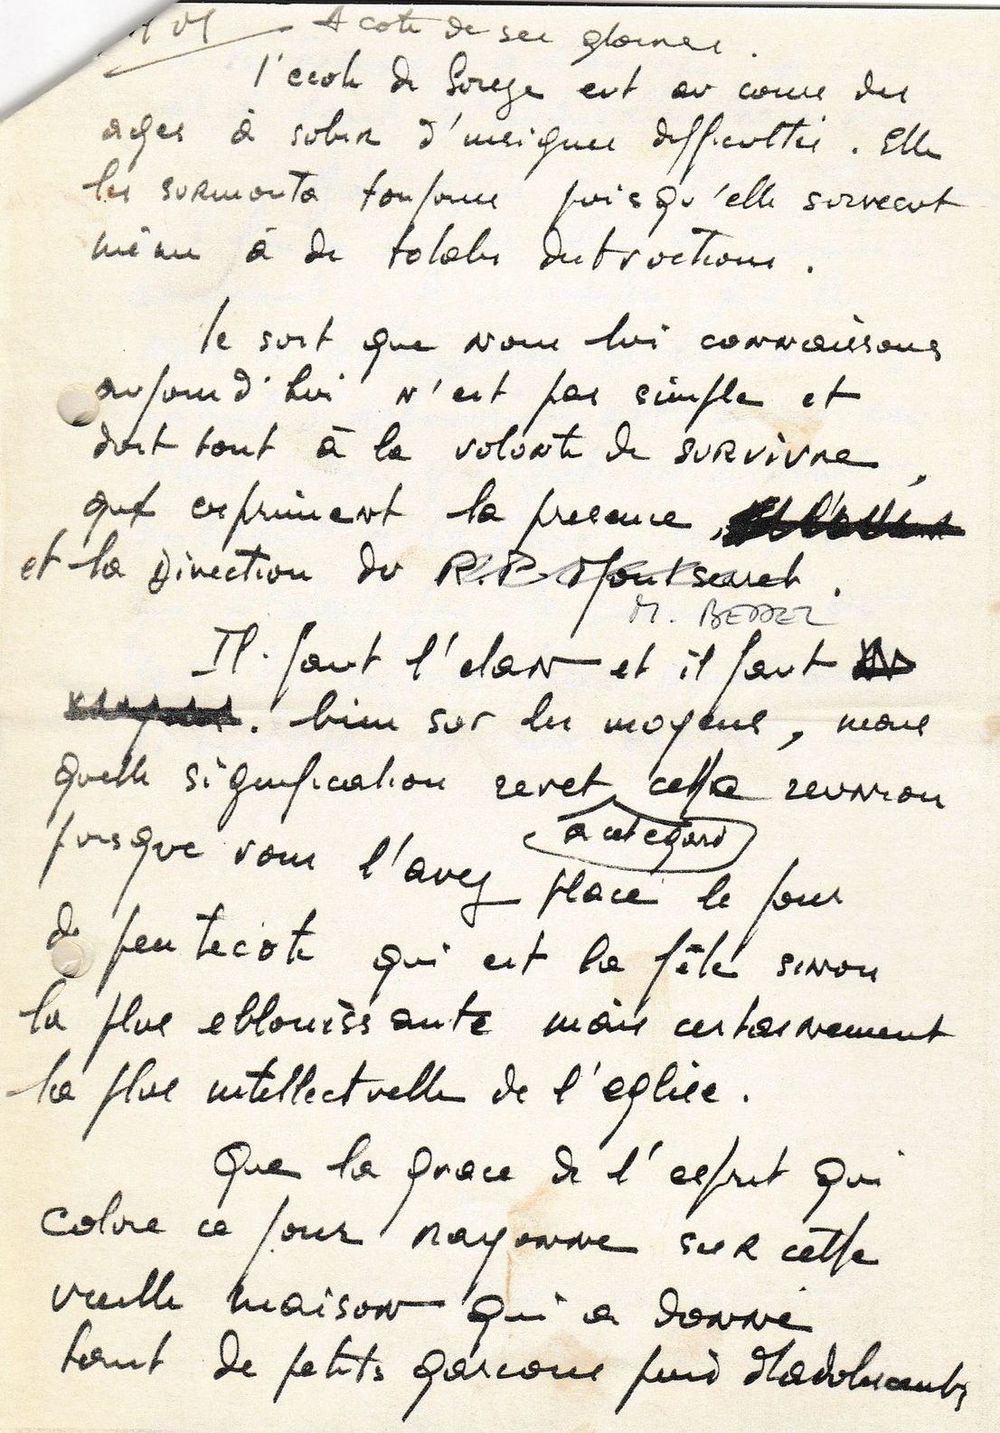 A cote de ses gloires.
l'ecole de Soreze eut au cours des
ages à subir d'insignes difficultés. Elle
les surmonta toujours puisqu'elle survecut
même à de totales destructions.
le sort que nous lui connaissons
aujourd'hui n'est pas simple et
doit tout à la volonte de survivre,
que expriment la presence,
et la Direction du R.P. Montserret.
M. BEDDEZ
Il faut l'elan et il faut
bien sur les moyens, mais
quelle signification revet cette reunion
a cet egard
puisque vous l'avez place le jour
de pentecôte qui est la fête sinon
la plus eblouissante mais certainement
la plus intellectuelle de l'eglise.
Que la grace de l'esprit qui
colore ce jour rayonne sur cette
vieille maison qui a donné
tant de petits garcons puis d'adolescents